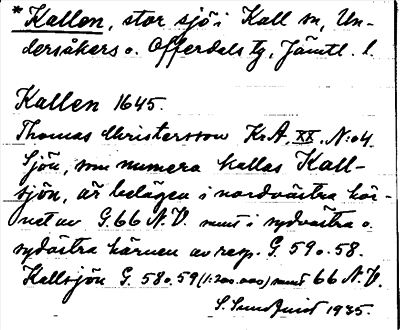 *Kallen, stor sjö i Kall sn, Un-
dersåkers o. Offerdals tg, Jämtl. l.
Kallen 1645.
Thomas Christersson Kr A, XX. N:o 4.
Sjön, som numera kallas Kall-
sjön, är belägen i nordvästra hör-
net av G. 66 N.V. samt i sydvästra o.
sydöstra hörnen av resp. G. 59 o. 58.
Kallsjön G. 58 o. 59 (1:200.000) samt 66 N.V.
1935.